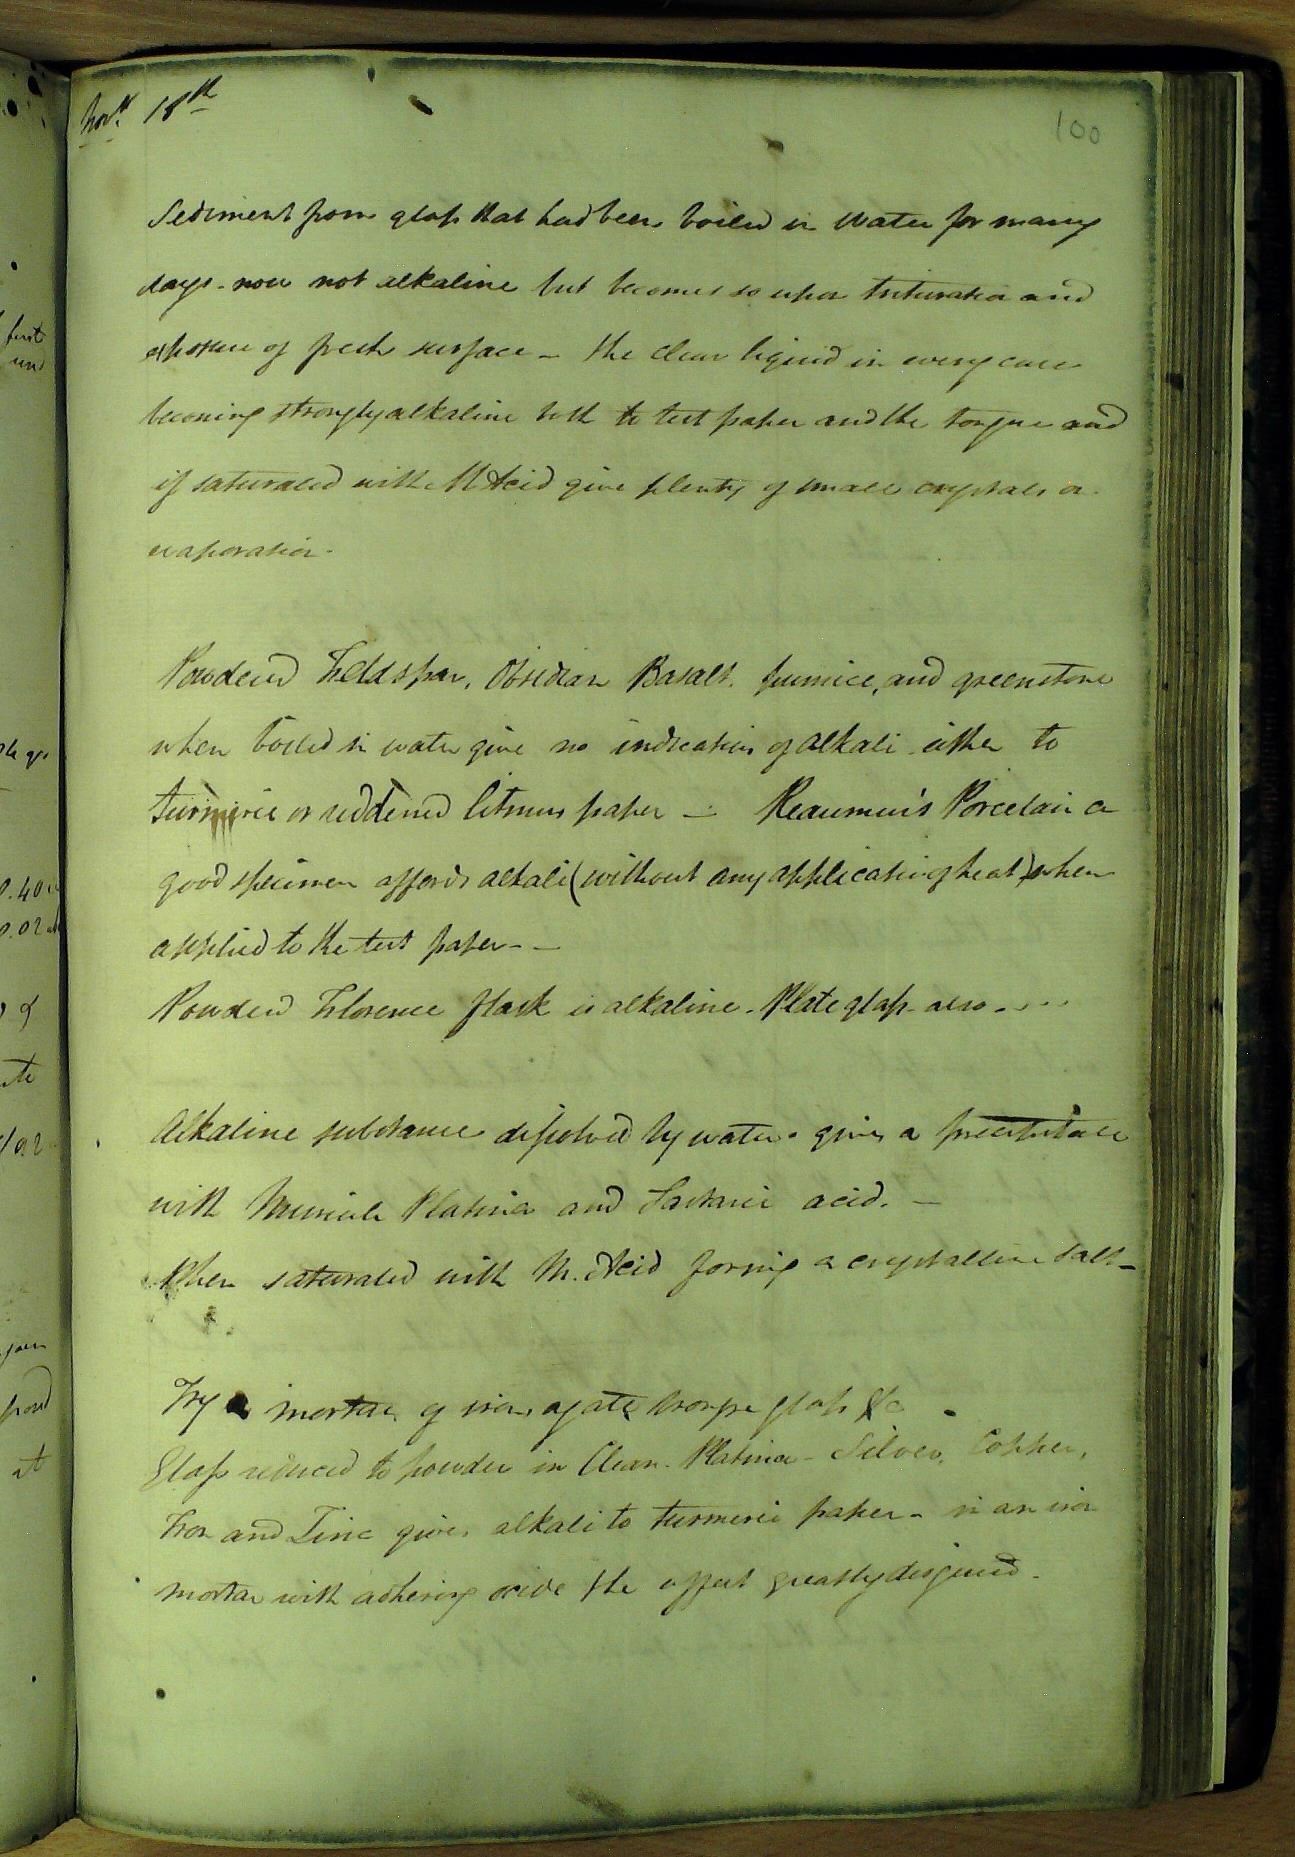 Novr. 18th
100
Sediment from glass that had been boiled in water for many
days - now not alkaline but becomes so upon trituration and
exposure of fresh surface - the clear liquid in every case
becoming strongly alkaline both to test paper and the tongue and
if saturated with M Acid give plenty of small crystals on
evaporation.
Powdered Feldspar, Obsidian Basalt. pumice, and greenstone
when boiled in water give no indication of alkali either to
turmeric or reddened litmus paper - Reaumur's Porcelain a
good specimen affords alkali (without any application of heat) when
applied to the test paper - -
Powdered Florence flask is alkaline. Plate glass also . . . .
Alkaline substance dissolved by water - gives a precipitate
with Muriate Platina and Tartaric acid. -
When saturated with M. Acid forming a crystalline salt -
Try mortar of iron, agate glass &c
Glass reduced to powder in Clean Platina - Silver, Copper,
Iron and Zinc gives alkali to turmeric paper - in an iron
mortar with adhering oxide the effect greatly disguised.
first
0.40
0.02
of
at